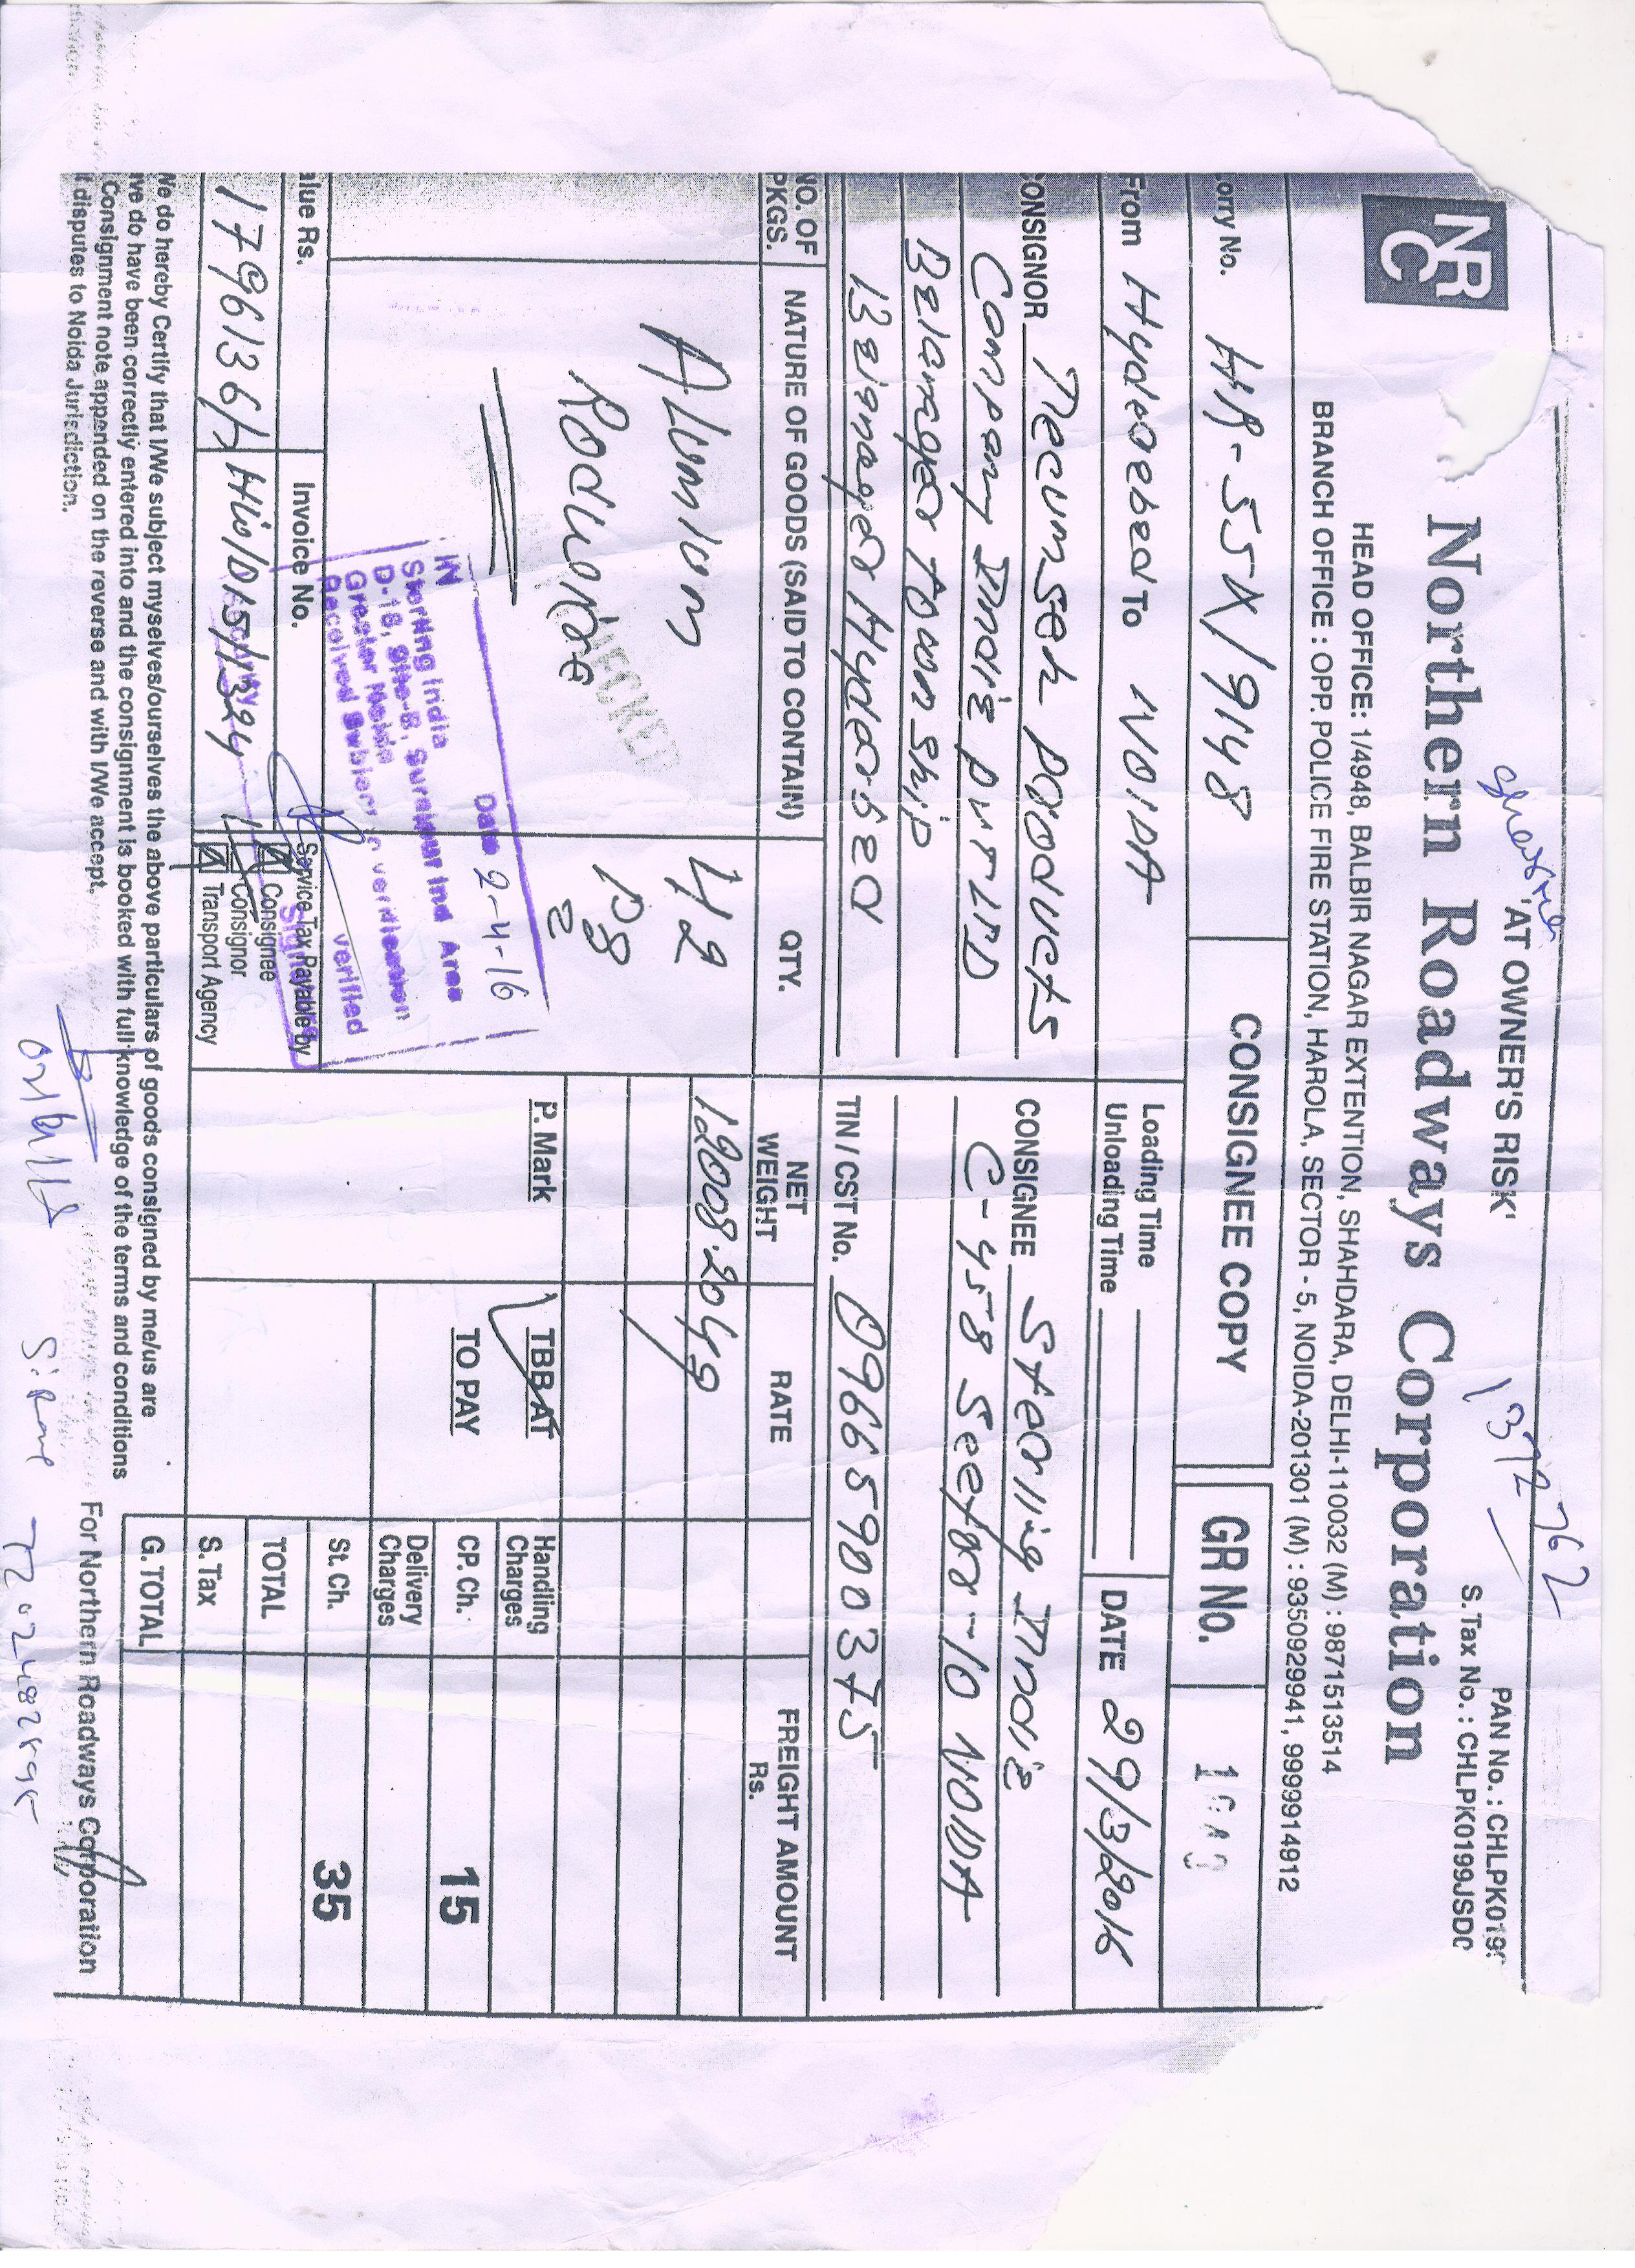 'AT OWNER'S RISK'
1372762
PAN No. : CHLPK019
S.Tax No. : CHLPK0199JSD
NRC
Northern Roadways Corporation
HEAD OFFICE: 1/4948, BALBIR NAGAR EXTENTION, SHAHDARA, DELHI-110032 (M) : 9871513514
BRANCH OFFICE : OPP. POLICE FIRE STATION, HAROLA, SECTOR - 5, NOIDA-201301 (M) : 9350929941, 9999914912
orry No. HR-55N/9148
CONSIGNEE COPY
GR No.
From Hyderebad To NOIDA
Loading Time
Unloading Time
DATE 29/3/2016
ONSIGNOR Tecumseh Products
Company India Pvt LTD
Belanager Township
Balanager Hyderbad
CONSIGNEE Sterling India
C-458 Sector-10 NOIDA
TIN / CST No. 09665900375
NO. OF PKGS.
NATURE OF GOODS (SAID TO CONTAIN)
QTY.
NET WEIGHT
RATE
FREIGHT AMOUNT Rs.
Alumium
42
12008.204
CHECKED
P. Mark
TBB AT
TO PAY
Handling Charges
CP. Ch. 15
Delivery Charges
St. Ch. 35
TOTAL
S. Tax
G. TOTAL
Date 2-4-16
Sterling India
D-18, Site-B, Surajpur Ind Area
Greater Noida
Received Subject to verification
verified
Security
alue Rs.
Invoice No.
Service Tax Payable by
1796136/1
Hin/D15/1324
Consignee
Consignor
Transport Agency
We do hereby Certify that I/We subject myselves/ourselves the above particulars of goods consigned by me/us are
ve do have been correctly entered into and the consignment is booked with full knowledge of the terms and conditions
Consignment note appended on the reverse and with I/We accept.
ll disputes to Noida Jurisdiction.
For Northern Roadways Corporation